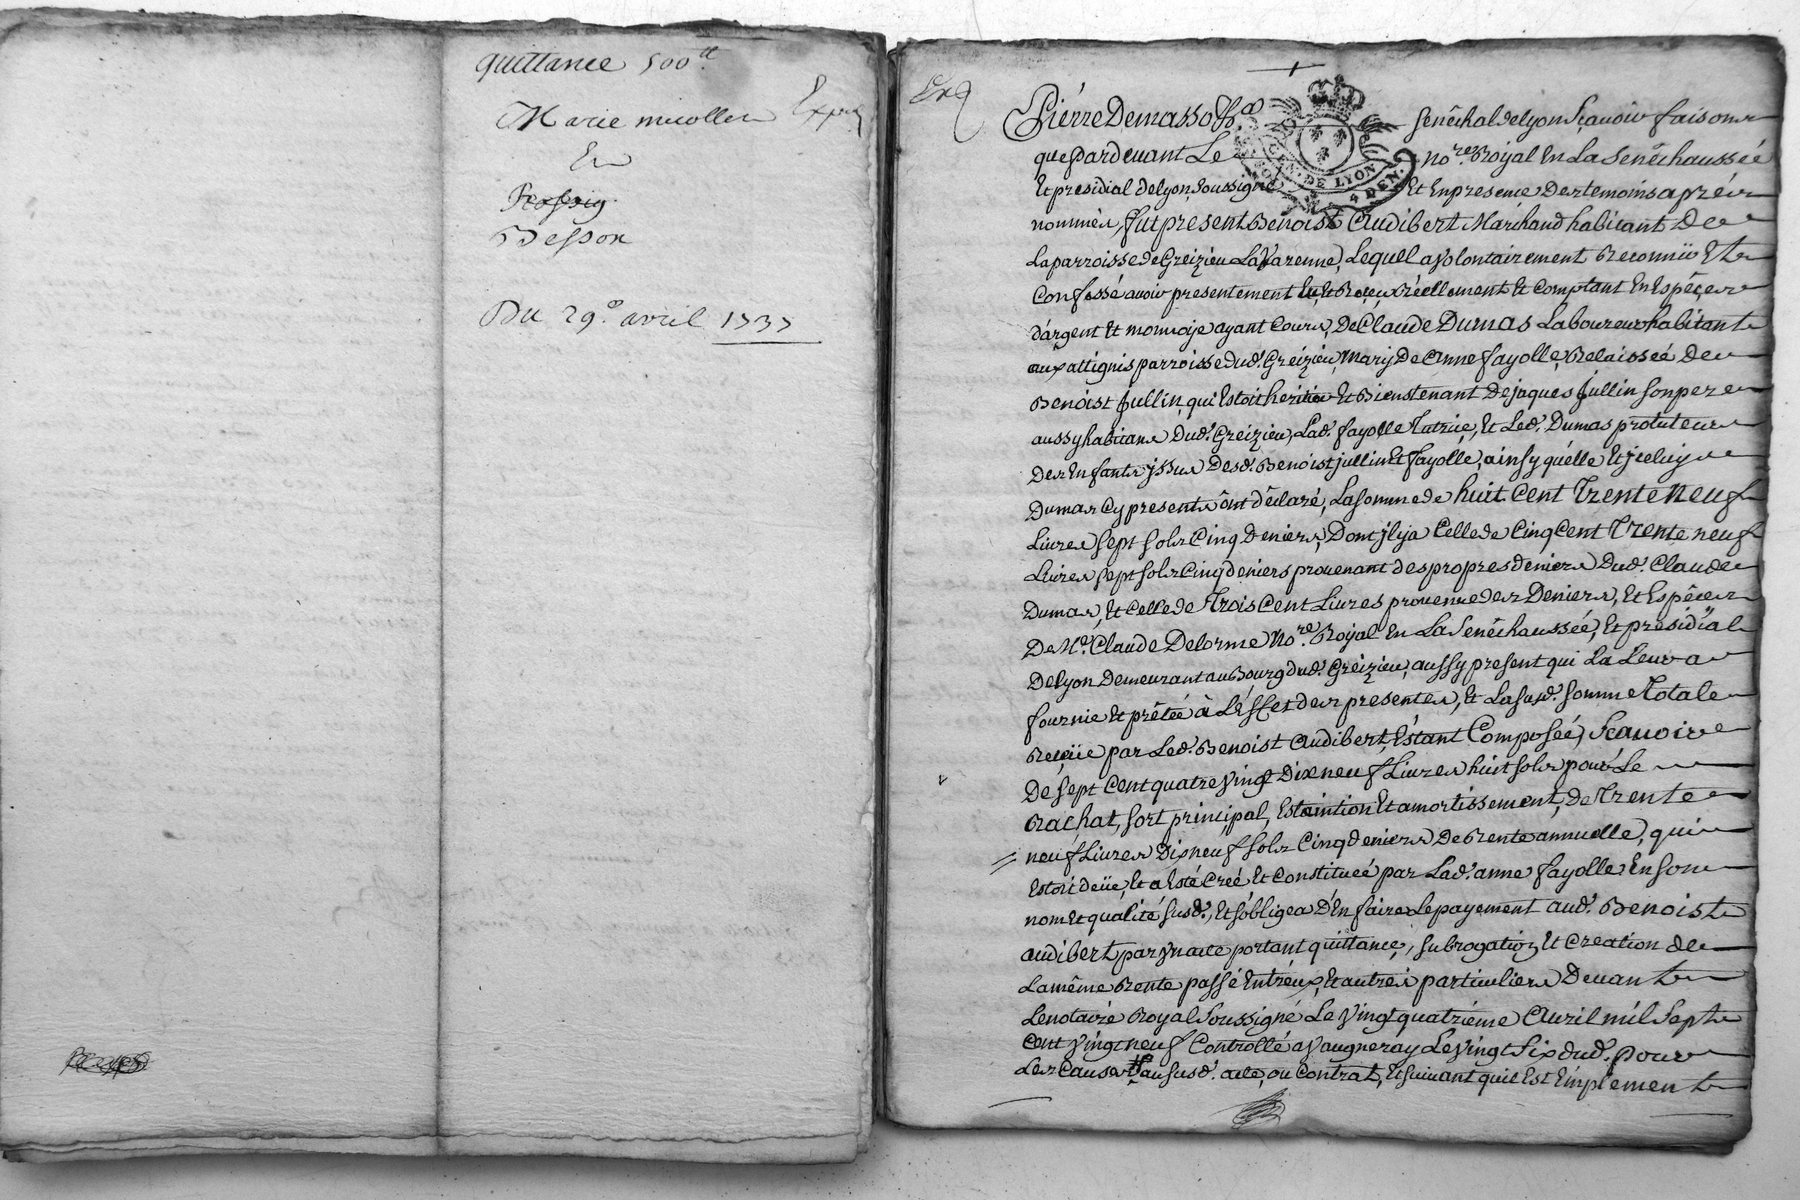 quittance 500ᵗᵗ
Marie micollet Exp
Et
Besson
Du 29ᵉ avril 1737
Exp
Pierre Demasso &ᵃ Senêchal de lyon Sçavoir faisons
que Pardevant Le noʳᵉ Royal En La Senêchaussée
GEN. DE LYON
4 DEN.
Et presidial de lyon Soussigné Et En presence Des temoins aprés
nommés, fut present Benoist Audibert Marchand habitant De
La parroisse de Greizieu La Varenne, Lequel a Volontairement Reconnü Et
Confessé avoir presentement Eu, Et Reçeu Réellement Et Comptant En Espéçes
d'argent Et monnoye ayant Cours, De Claude Dumas Laboureur habitant
aux attignis parroisse dud. Greizieu, Mary De Anne fayolle, Relaissée de
Benoist Jullin, qui Estoit heritier Et Bienstenant De jaques Jullin Son pere
aussy habitans Dud. Greizieu, Lad. fayolle Tutrice, Et Led. Dumas protuteur
Des Enfants jssus Desd. Benoist jullin Et fayolle, ainsy qu'elle Et jceluy
Dumas Cy presents ônt déclaré, La Somme de huit Cent Trente Neuf
Livres Sept Sols Cinq Deniers, Dont jl y a Celle de Cinq Cent Trente neuf
Livres Sept Sols Cinq deniers provenant des propres deniers Dud. Claude
Dumas, Et Celle de Trois Cent Livres provenue des Deniers, Et Espêces
De Mᵉ. Claude Delorme Noʳᵉ Royal En La Senêchaussée, Et presidial
De lyon Demeurant au Bourg dud. Greizieu, aussy present qui La Leur a
fournie Et prêtée à L'Effet des presentes, Et La Susd. Somme Totale
Reçüe par Led. Benoist Audibert, Estant Composée, Scavoir
De Sept Cent quatre Vingt Dix neuf Livres huit Sols pour Le
Rachat, Sort principal, Estointion Et amortissement, de Trente
neuf Livres Dix neuf Sols Cinq deniers De Rente annuelle, qui
Estoit deüe, Et a Esté Créé Et Constituée par Lad. anne fayolle En Son
nom Et qualité Susd., Et S'obligea D'En faire Le payement aud. Benoist
audibert par Vn acte portant quittance, Subrogation Et Creation de
La même Rente passé Entr'eux, Et autres particuliers Devant
Le notaire Royal Soussigné Le Vingt quatrième Avril mil Sept
Cent Vingt neuf Controllé a Vaugneray Le Vingt Six dud. pour
Les Causes au Susd. acte, ou Contrat, Et Suivant qu'il Est Emplement